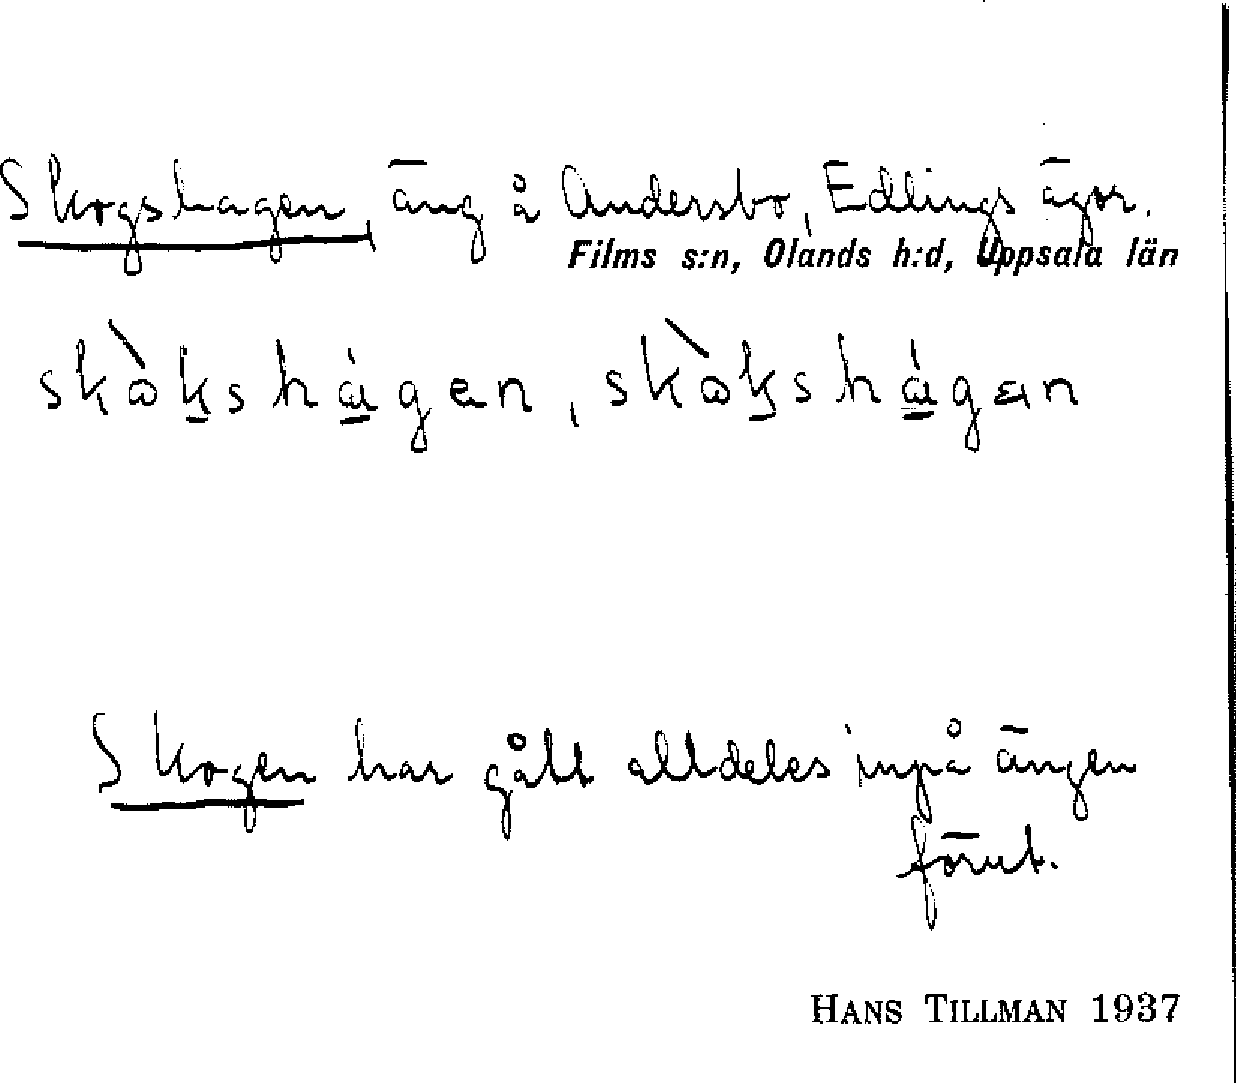 Skogshagen, äng å Andersbo, Edlings ägor.
Films s:n, Olands h:d, Uppsala län
skò̀kshágen, skò̀kshágan
Skogen har gått alldeles inpå ängen
förut.
HANS TILLMAN 1937